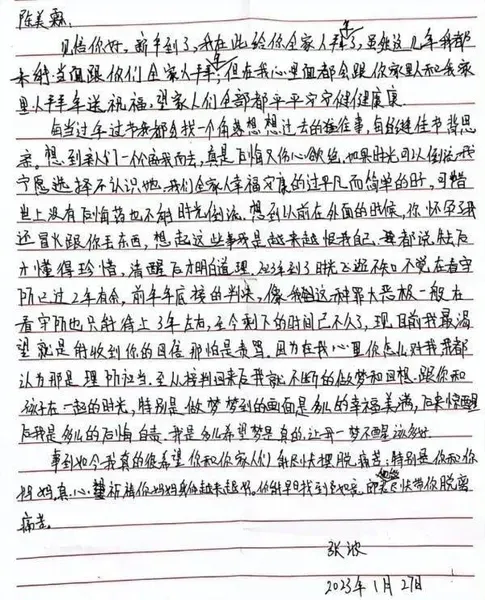 陈美霖:
见信你好。新年到了,我在此给你全家人拜年了,虽然这几年我都
未能当面跟你们全家人拜年,但在我心里面都会跟你家里人和我家
里人拜年送祝福,望家人们全部都平平安安健健康康
每当过年过节我都会找一个角落想想过去的往事,每每佳节倍思
亲。想到亲人们一个个离我而去,真是后悔又伤心欲绝,如果时光可以倒流我
宁愿选择不认识她。我们全家人幸福安康的过平凡而简单的时,可惜
世上没有后悔药也不能时光倒流。想到以前在外面的时候,你怀孕了我
还冒火跟你丢东西,想起这些事我是越来越恨我自己。都说失去后
才懂得珍惜,清醒后才明白道理。2023年到了时光飞逝不知不觉在看守
所已过2年有余,前年年底接的判决,像我们这种罪大恶极一般在
看守所也只能待上3年左右,至今剩下的时间已不久了,现目前我最渴
望就是能收到你的回信那怕是责骂。因为在我心里你怎么对我我都
认为那是理所应当。至从接判回来后我就不断的做梦和回想跟你和
孩子在一起的时光,特别是做梦梦到的画面是多么的幸福美满,后来惊醒
后我是多么的后悔自责。我是多么希望梦是真的,让我一梦不醒该多好。
事到如今我真的很希望你和你家人们能尽快摆脱痛苦,特别是你和你
妈妈,真心祝福你妈妈身体越来越好。你能早日找到,尽快带你脱离
痛苦。
张波
2023年1月27日